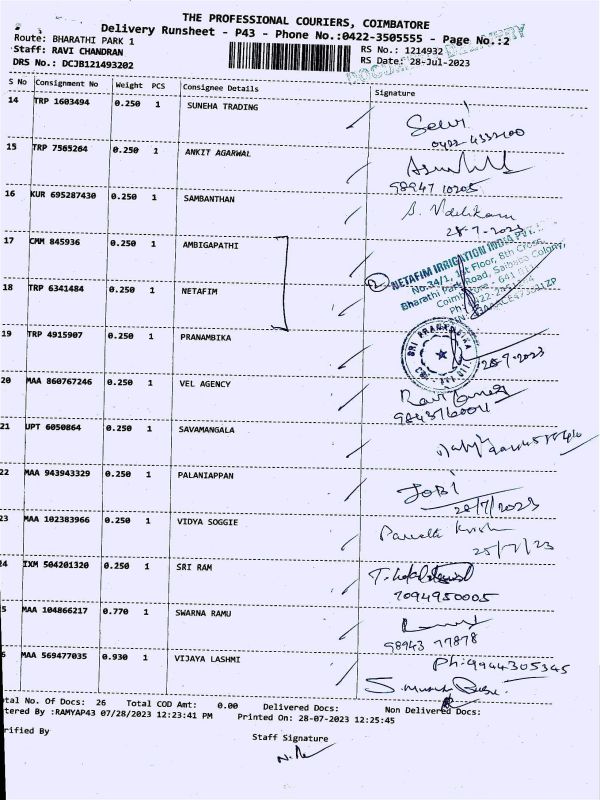 THE PROFESSIONAL COURIERS, COIMBATORE
Delivery Runsheet - P43 - Phone No.:0422-3505555 - Page No.:2
Route: BHARATHI PARK 1
RS No.: 1214932
Staff: RAVI CHANDRAN
RS Date: 28-Jul-2023
DRS No.: DCJB121493202
DELIVERY
S No Consignment No Weight PCS Consignee Details Signature
14 TRP 1603494 0.250 1 SUNEHA TRADING
Selvi
0422 4332400
15 TRP 7565264 0.250 1 ANKIT AGARWAL
98947 10205
16 KUR 695287430 0.250 1 SAMBANTHAN
28-7-2023
17 CMM 845936 0.250 1 AMBIGAPATHI
NETAFIM IRRIGATION INDIA PVT.
No.34/1, 1st Floor, 8th Cross,
Bharathi Park Road, Saibaba Colony,
18 TRP 6341484 0.250 1 NETAFIM
19 TRP 4915907 0.250 1 PRANAMBIKA
28-7-2023
20 MAA 860767246 0.250 1 VEL AGENCY
21 UPT 6050864 0.250 1 SAVAMANGALA
22 MAA 943943329 0.250 1 PALANIAPPAN
JOBI
28/7/2023
23 MAA 102383966 0.250 1 VIDYA SOGGIE
25/7/23
24 IXM 504201320 0.250 1 SRI RAM
7094950005
5 MAA 104866217 0.770 1 SWARNA RAMU
98943 77878
6 MAA 569477035 0.930 1 VIJAYA LASHMI
Ph:9944305345
otal No. Of Docs: 26 Total COD Amt: 0.00 Delivered Docs: Non Delivered Docs:
tered By :RAMYAP43 07/28/2023 12:23:41 PM Printed On: 28-07-2023 12:25:45
rified By
Staff Signature